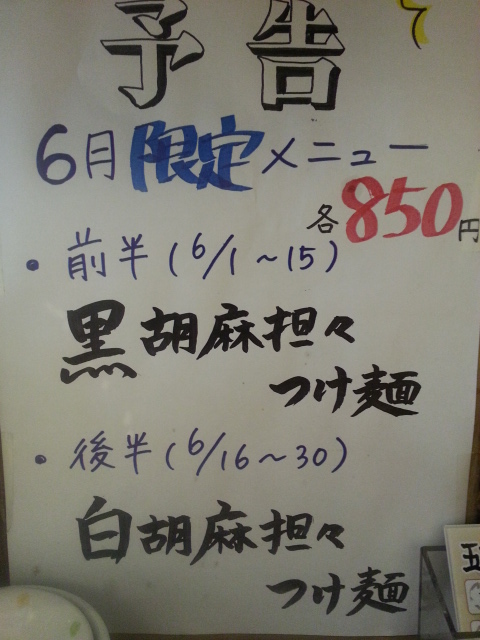 予告
6月限定メニュー
各850円
・前半(6/1~15)
黒胡麻担々
つけ麺
・後半(6/16~30)
白胡麻担々
つけ麺